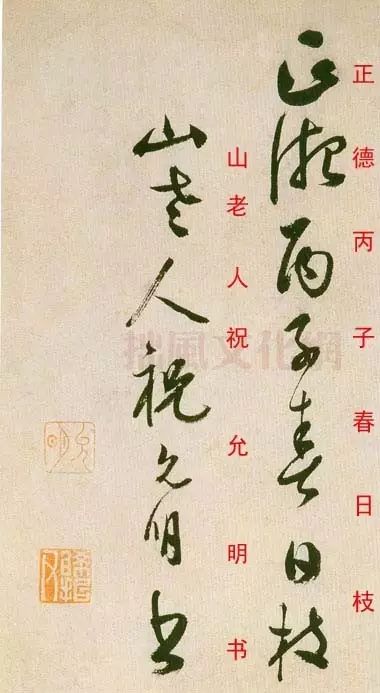 正德丙子春日枝
正德丙子春日枝
山老人祝允明书
山老人祝允明書
拙風文化網
允明